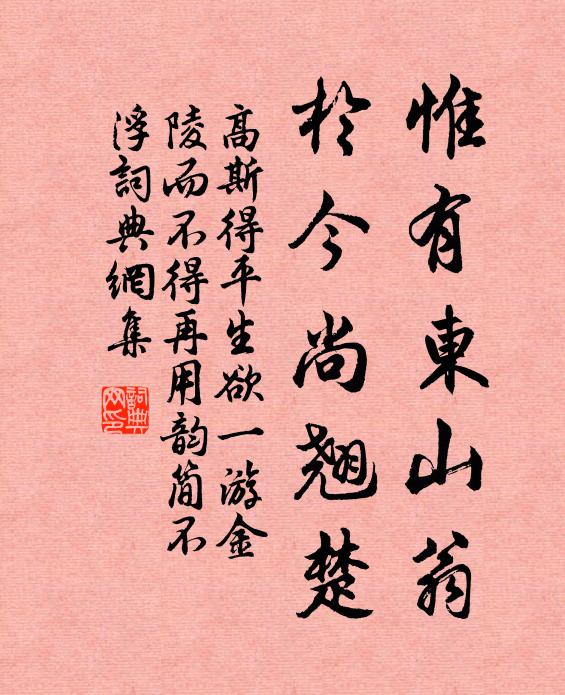 惟有東山翁
於今尚翹楚
高斯得平生欲一游金
陵而不得再用韵简不
浮詞典網集
詞典
网印